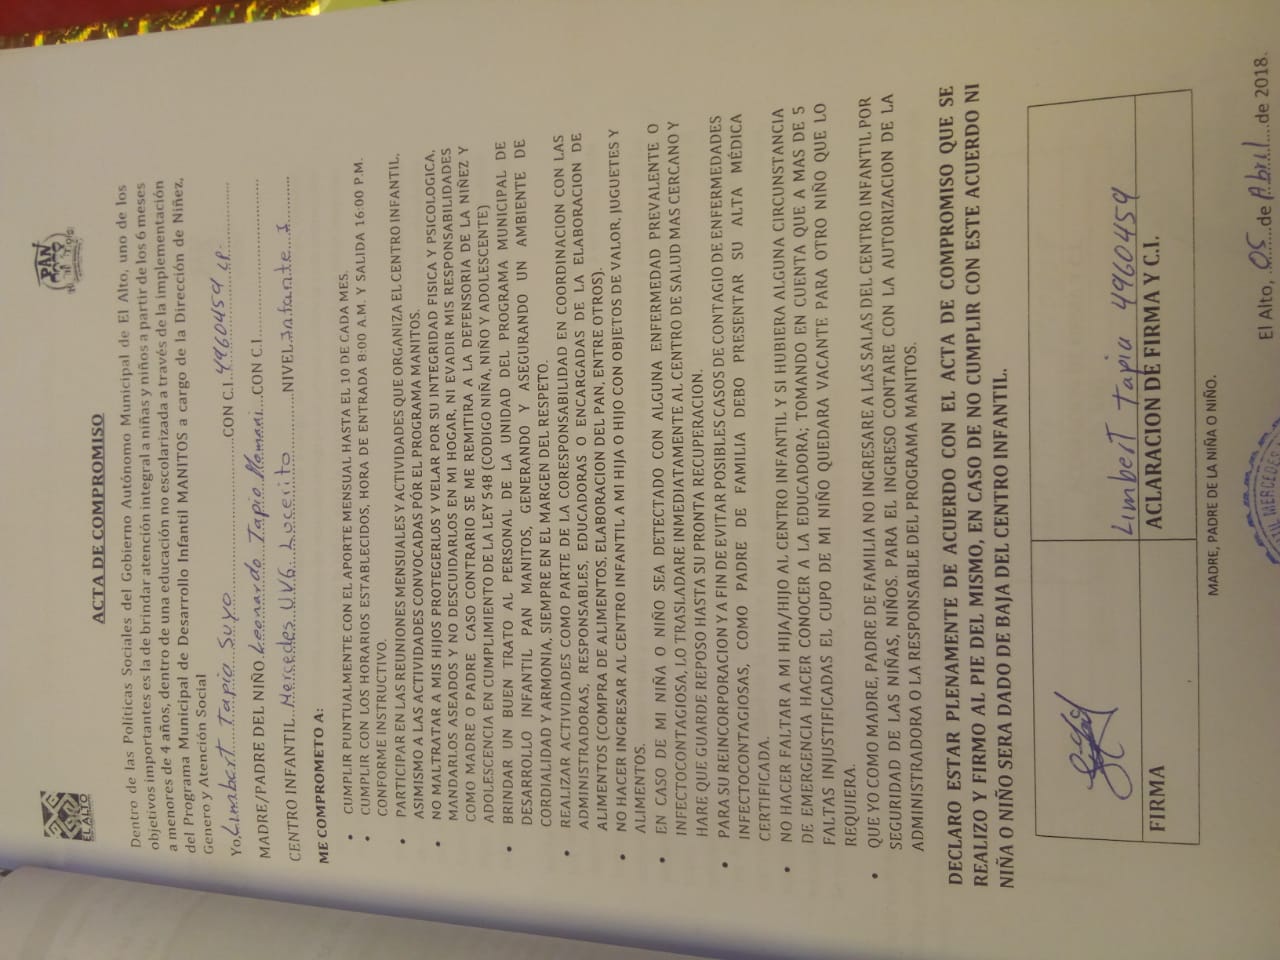 EL ALTO
PAN
MANITOS
ACTA DE COMPROMISO
Dentro de las Políticas Sociales del Gobierno Autónomo Municipal de El Alto, uno de los
objetivos importantes es la de brindar atención integral a niñas y niños a partir de los 6 meses
a menores de 4 años, dentro de una educación no escolarizada a través de la implementación
del Programa Municipal de Desarrollo Infantil MANITOS a cargo de la Dirección de Niñez,
Genero y Atención Social
Yo, Limbert Tapia Suyo CON C.I. 4960459 LP.
MADRE/PADRE DEL NIÑO Leonardo Tapia Mamani CON C.I.
CENTRO INFANTIL Mercedes UV6 Lucerito NIVEL Infante I
ME COMPROMETO A:
• CUMPLIR PUNTUALMENTE CON EL APORTE MENSUAL HASTA EL 10 DE CADA MES.
• CUMPLIR CON LOS HORARIOS ESTABLECIDOS, HORA DE ENTRADA 8:00 A.M. Y SALIDA 16:00 P.M.
CONFORME INSTRUCTIVO.
• PARTICIPAR EN LAS REUNIONES MENSUALES Y ACTIVIDADES QUE ORGANIZA EL CENTRO INFANTIL,
ASIMISMO A LAS ACTIVIDADES CONVOCADAS PÓR EL PROGRAMA MANITOS.
• NO MALTRATAR A MIS HIJOS PROTEGERLOS Y VELAR POR SU INTEGRIDAD FISICA Y PSICOLOGICA,
MANDARLOS ASEADOS Y NO DESCUIDARLOS EN MI HOGAR, NI EVADIR MIS RESPONSABILIDADES
COMO MADRE O PADRE CASO CONTRARIO SE ME REMITIRA A LA DEFENSORIA DE LA NIÑEZ Y
ADOLESCENCIA EN CUMPLIMIENTO DE LA LEY 548 (CODIGO NIÑA, NIÑO Y ADOLESCENTE)
• BRINDAR UN BUEN TRATO AL PERSONAL DE LA UNIDAD DEL PROGRAMA MUNICIPAL DE
DESARROLLO INFANTIL PAN MANITOS, GENERANDO Y ASEGURANDO UN AMBIENTE DE
CORDIALIDAD Y ARMONIA, SIEMPRE EN EL MARGEN DEL RESPETO.
• REALIZAR ACTIVIDADES COMO PARTE DE LA CORESPONSABILIDAD EN COORDINACION CON LAS
ADMINISTRADORAS, RESPONSABLES, EDUCADORAS O ENCARGADAS DE LA ELABORACION DE
ALIMENTOS (COMPRA DE ALIMENTOS, ELABORACION DEL PAN, ENTRE OTROS).
• NO HACER INGRESAR AL CENTRO INFANTIL A MI HIJA O HIJO CON OBJETOS DE VALOR, JUGUETES Y
ALIMENTOS.
• EN CASO DE MI NIÑA O NIÑO SEA DETECTADO CON ALGUNA ENFERMEDAD PREVALENTE O
INFECTOCONTAGIOSA, LO TRASLADARE INMEDIATAMENTE AL CENTRO DE SALUD MAS CERCANO Y
HARE QUE GUARDE REPOSO HASTA SU PRONTA RECUPERACION.
• PARA SU REINCORPORACION Y A FIN DE EVITAR POSIBLES CASOS DE CONTAGIO DE ENFERMEDADES
INFECTOCONTAGIOSAS, COMO PADRE DE FAMILIA DEBO PRESENTAR SU ALTA MÉDICA
CERTIFICADA.
• NO HACER FALTAR A MI HIJA/HIJO AL CENTRO INFANTIL Y SI HUBIERA ALGUNA CIRCUNSTANCIA
DE EMERGENCIA HACER CONOCER A LA EDUCADORA; TOMANDO EN CUENTA QUE A MAS DE 5
FALTAS INJUSTIFICADAS EL CUPO DE MI NIÑO QUEDARA VACANTE PARA OTRO NIÑO QUE LO
REQUIERA.
• QUE YO COMO MADRE, PADRE DE FAMILIA NO INGRESARE A LAS SALAS DEL CENTRO INFANTIL POR
SEGURIDAD DE LAS NIÑAS, NIÑOS. PARA EL INGRESO CONTARE CON LA AUTORIZACION DE LA
ADMINISTRADORA O LA RESPONSABLE DEL PROGRAMA MANITOS.
DECLARO ESTAR PLENAMENTE DE ACUERDO CON EL ACTA DE COMPROMISO QUE SE
REALIZO Y FIRMO AL PIE DEL MISMO, EN CASO DE NO CUMPLIR CON ESTE ACUERDO NI
NIÑA O NIÑO SERA DADO DE BAJA DEL CENTRO INFANTIL.
Limbert Tapia 4960459
FIRMA ACLARACION DE FIRMA Y C.I.
MADRE, PADRE DE LA NIÑA O NIÑO.
El Alto, 05 de Abril de 2018.